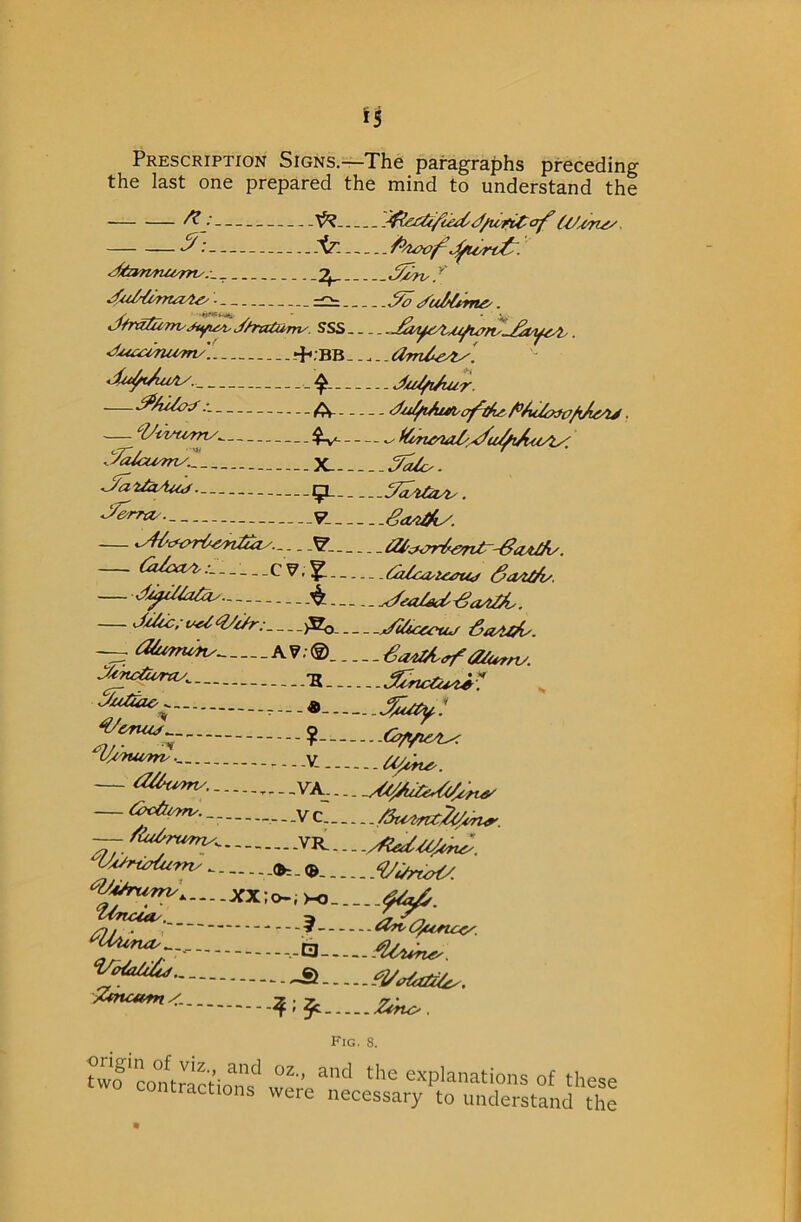 15
PRESCRIPTION SIGNS.—The paragraphs preceding
the last one prepared the mind to understand the
R: Rectified Spirit of Wine.
Proof Spirit.
Stannum: ♃ Tin.
Sublimate To Sublime.
Stratum super Stratum. SSS Layer upon Layer.
Succinum BB Amber.
Sulphur 🜍 Sulphur.
Philos: Sulphur of the Philosophers.
Vivum Mineral Sulphur.
Talcum X Talc.
Tartarus Tartar.
Terra 🜃 Earth.
Absorbentia Absorbent Earth.
Calcar: C Calcareous Earth.
Sigillata Sealed Earth.
Silic; vel Vitr: Siliceous Earth.
Alumin A Earth of Alum.
Tinctura Tincture.
Tutiae Tutty.
Venus ♀ Copper.
Vinum V Wine.
Album. VA White Wine.
Coctum. VC Burnt Wine.
Rubrum VR Red Wine.
Vitriolum Vitriol.
Vitrum XX;o-;>-o Glass.
Uncia. An Ounce.
Urina Urine.
Volatilis Volatile.
Zincum Zinc.
FIG. 8.
origin of viz., and oz., and the explanations of these
two contractions were necessary to understand the